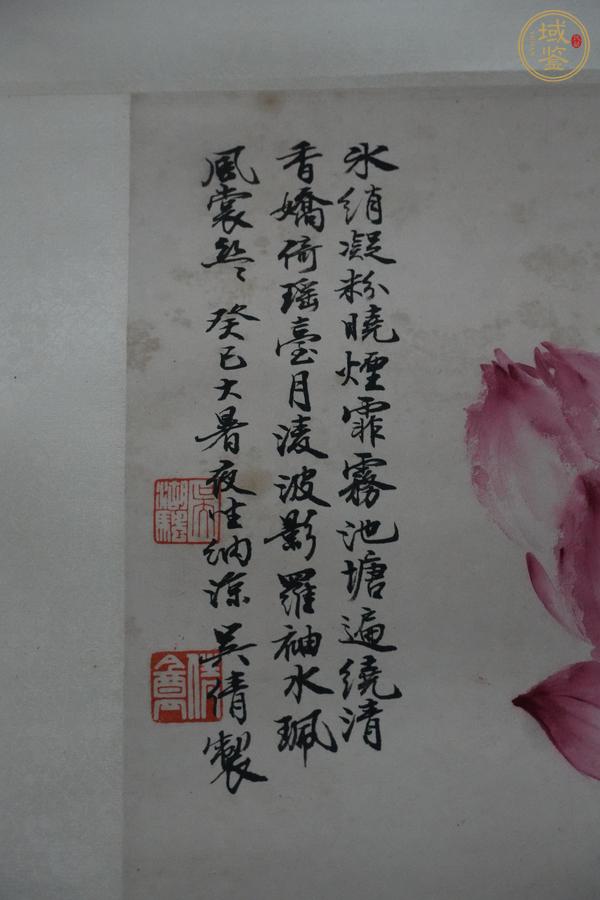 冰綃凝粉曉煙霏霧池塘遍繞清
香嬌倚瑶臺月淩波影羅袖水珮
風裳癸巳大暑夜坐納涼吳倩製
域鑒